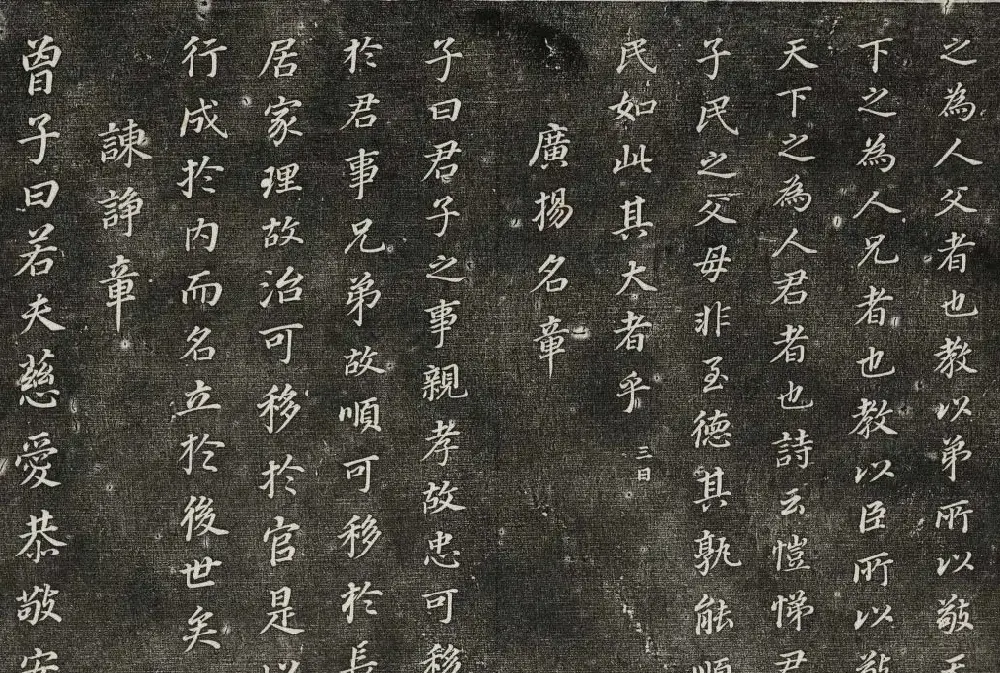 之為人父者也教以弟所以敬天
下之為人兄者也教以臣所以敬
天下之為人君者也詩云愷悌君
子民之父母非至德其孰能順
民如此其大者乎
三日
廣揚名章
子曰君子之事親孝故忠可移
於君事兄弟故順可移於長
居家理故治可移於官是以
行成於内而名立於後世矣
諫諍章
曾子曰若夫慈愛恭敬安